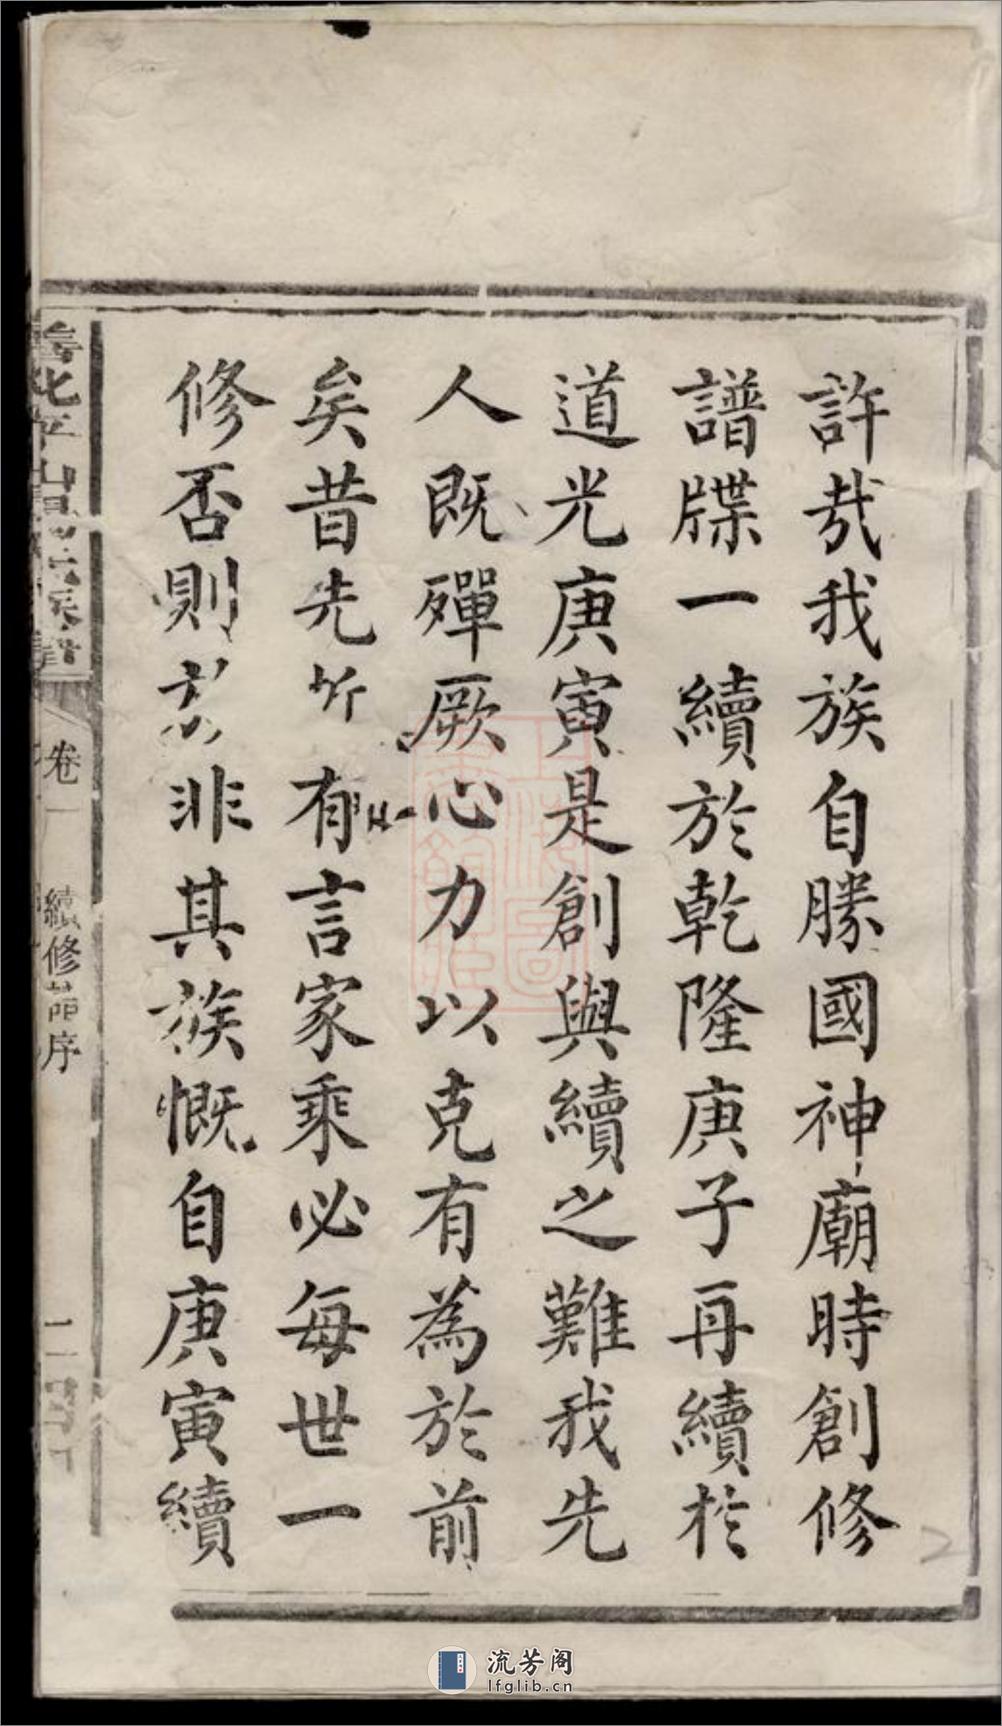 許哉我族自勝國神廟時創修
譜牒一續於乾隆庚子再續於
道光庚寅是創與續之難我先
人既殫厥心力以克有為於前
矣昔先有言家乘必每世一
修否則非其族慨自庚寅續
善化平山
卷一
續修譜序
二
流芳阁
lfglib.cn
2